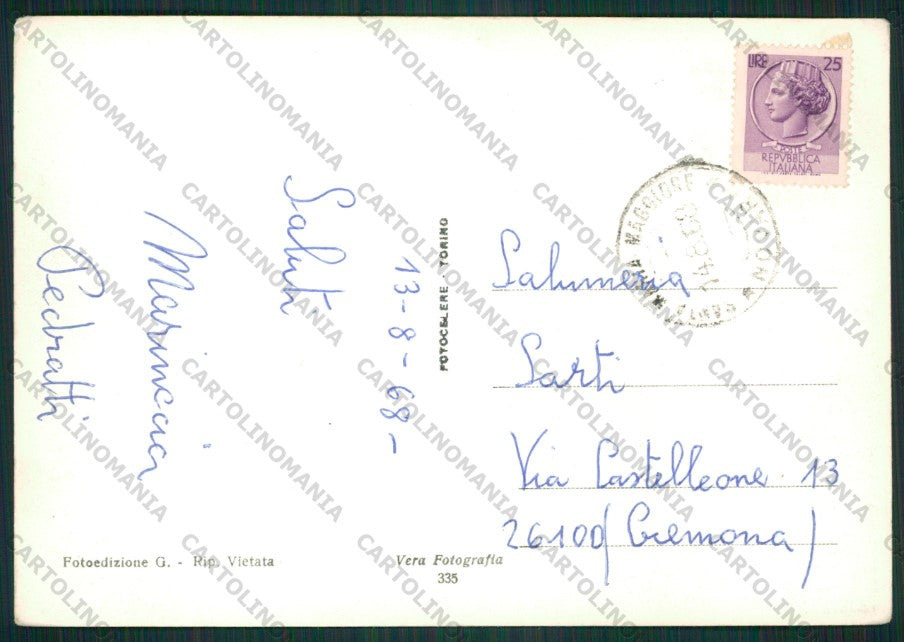 Saluti
13-8-68-
Marinccia
Pedratti
FOTOCELERE . TORINO
LIRE 25
POSTE
REPVBBLICA
ITALIANA
SANTA MARIA MAGGIORE
Salumeria
Sarti
Via Castelleone 13
26100 (Cremona)
Fotoedizione G. - Rip. Vietata
Vera Fotografia
335
CARTOLINOMANIA